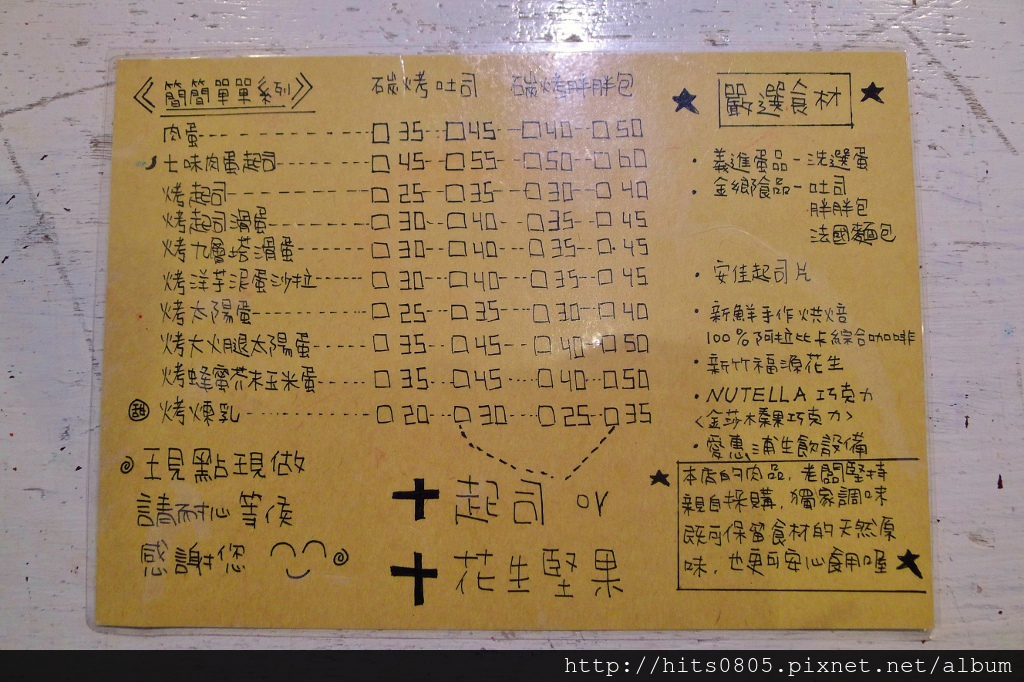 《簡簡單單系列》 碳烤吐司 碳烤胖胖包
肉蛋 □35 □45 □40 □50
七味肉蛋起司 □45 □55 □50 □60
烤起司 □25 □35 □30 □40
烤起司滑蛋 □30 □40 □35 □45
烤九層塔滑蛋 □30 □40 □35 □45
烤洋芋泥蛋沙拉 □30 □40 □35 □45
烤太陽蛋 □25 □35 □30 □40
烤火腿太陽蛋 □35 □45 □40 □50
烤蜂蜜芥末玉米蛋 □35 □45 □40 □50
甜 烤煉乳 □20 □30 □25 □35
+起司 or
+花生堅果
現點現做
請耐心等侯
感謝您
★嚴選食材★
・義進蛋品-洗選蛋
・金鄉食品-吐司
胖胖包
法國麵包
・安佳起司片
・新鮮手作烘焙
100%阿拉比卡綜合咖啡
・新竹福源花生
・NUTELLA 巧克力
<金莎榛果巧克力>
・愛惠浦生飲設備
★本店的肉品,老闆堅持
親自採購,獨家調味
既可保留食材的天然原
味,也更可安心食用喔★
http://hits0805.pixnet.net/album